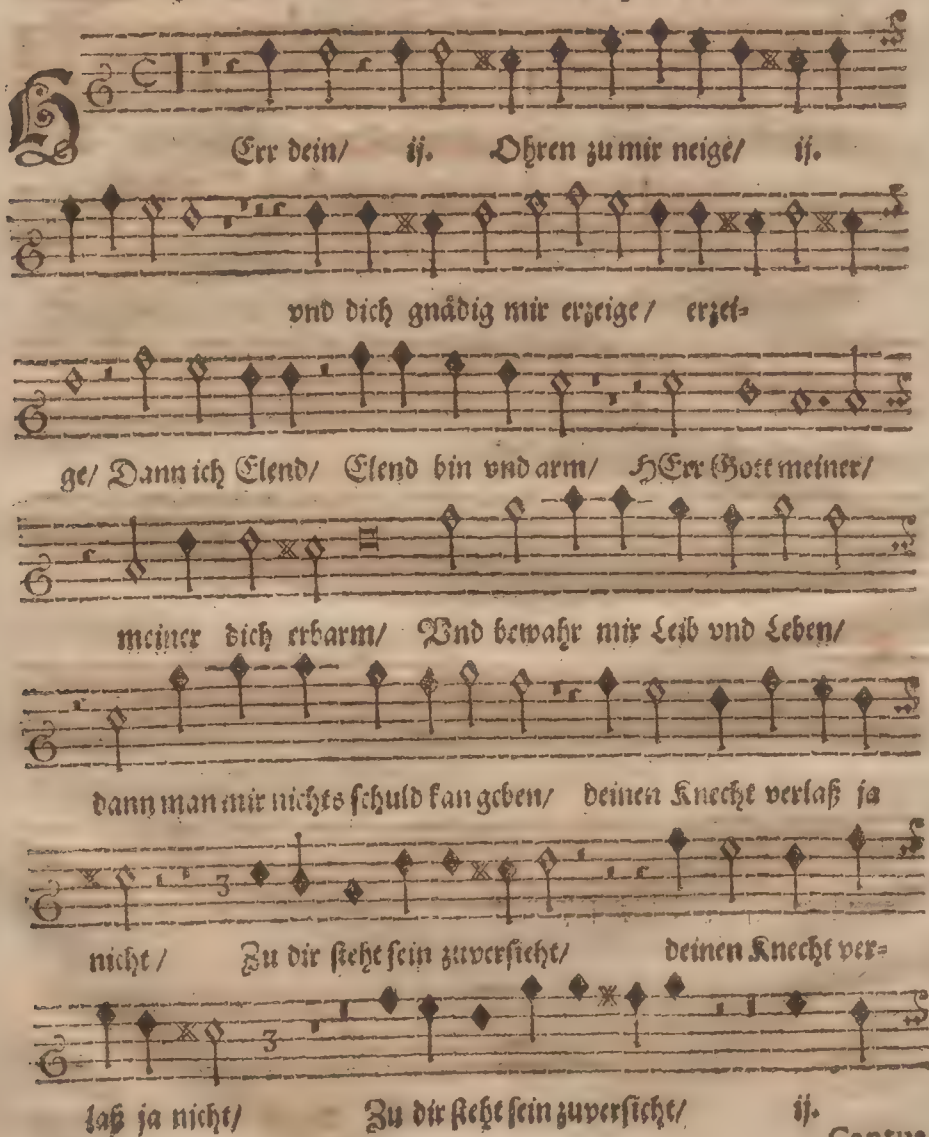 HErr dein/ ij. Ohren zu mir neige/ ij.
vnd dich gnådig mir erzeige/ erzei=
ge/ Dann ich Elend/ Elend bin vnd arm/ HErr Gott meiner/
meiner dich erbarm/ Vnd bewahr mir Leib vnd Leben/
dann man mir nichts schuld kan geben/ deinen Knecht verlaß ja
nicht/ Zu dir steht sein zuversicht/ deinen Knecht ver=
laß ja nicht/ Zu dir steht sein zuversicht/ ij.